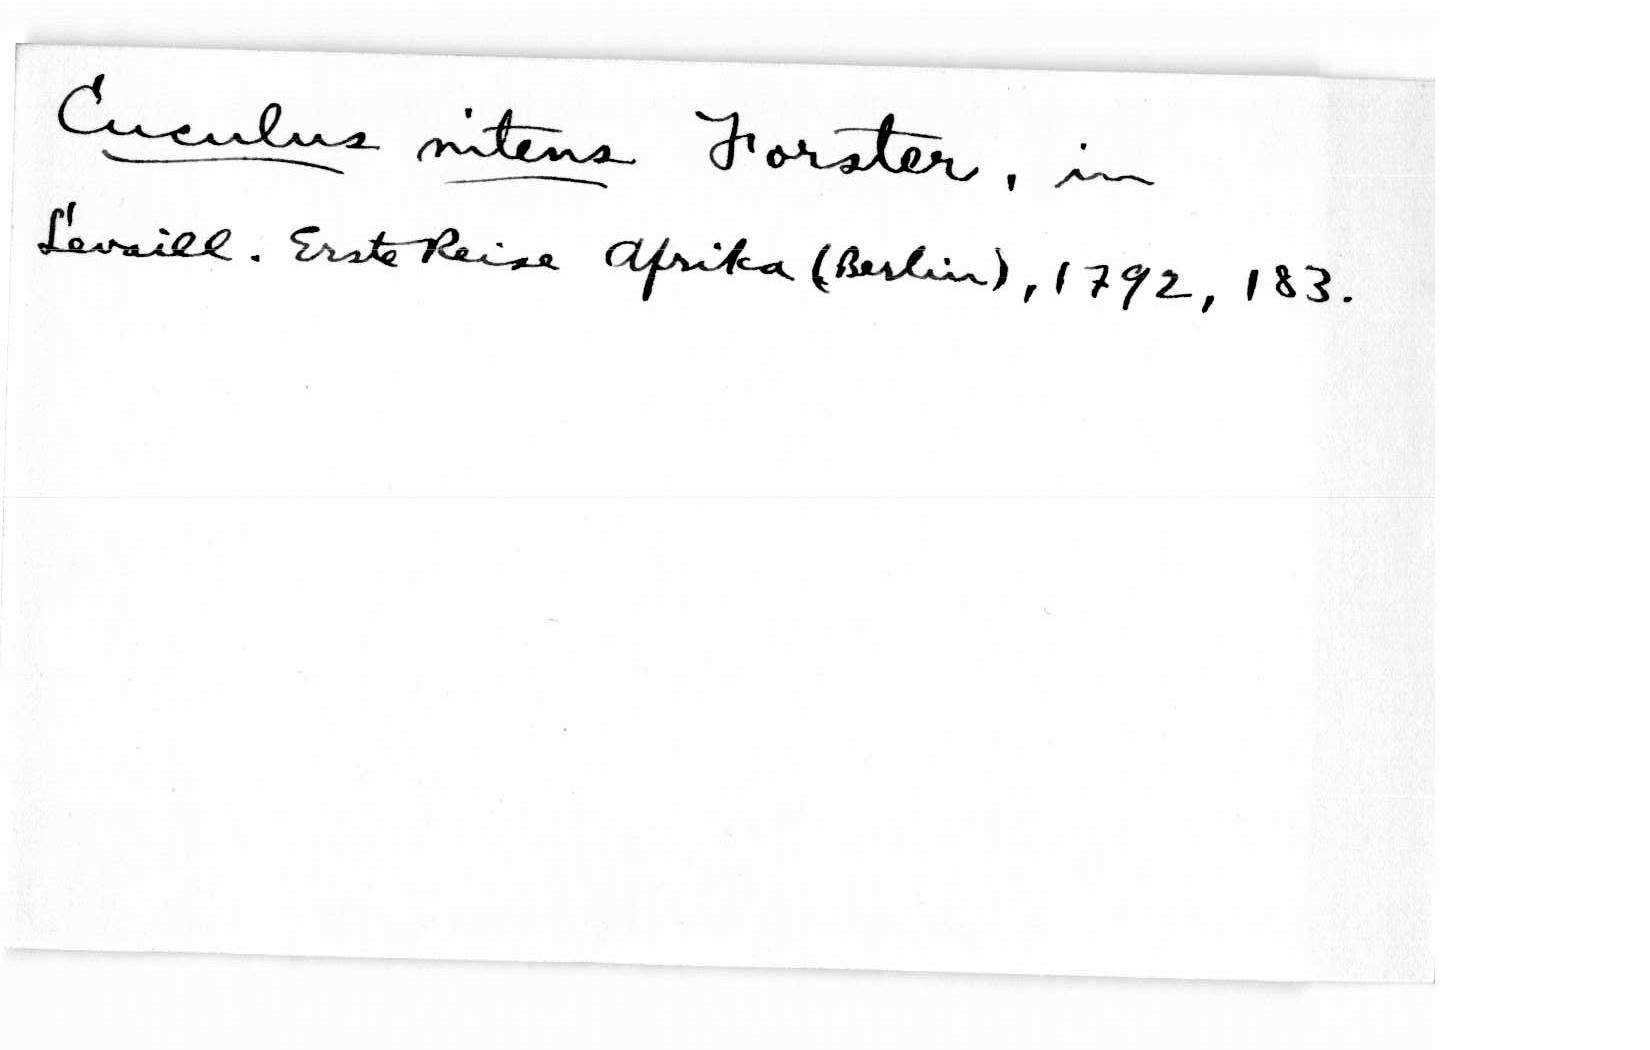 Cuculus nitens Forster, in
Levaill. Erste Reise Afrika (Berlin), 1792, 183.